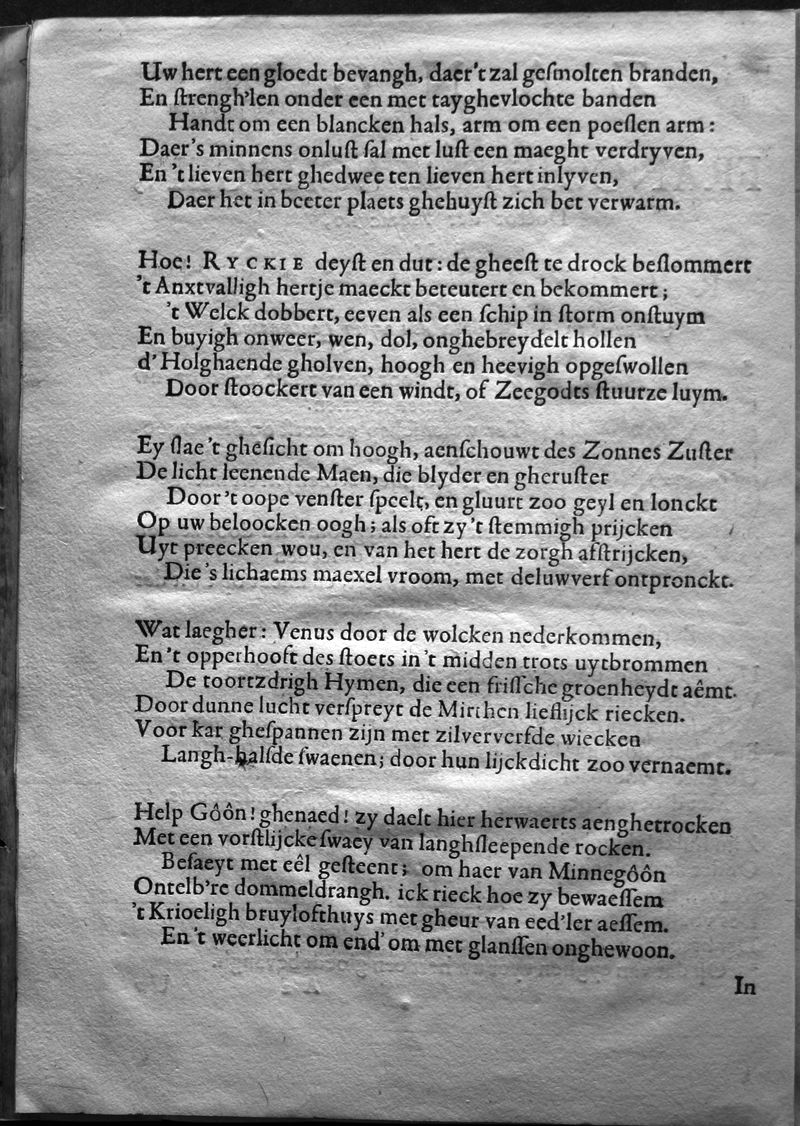 Uw hert een gloedt bevangh, daer't zal geſmolten branden,
En ſtrengh'len onder een met tayghevlochte banden
Handt om een blancken hals, arm om een poeſlen arm:
Daer's minnens onluſt ſal met luſt een maeght verdryven,
En 't lieven hert ghedwee ten lieven hert inlyven,
Daer het in beeter plaets ghehuyſt zich bet verwarm.
Hoe! RYCKIE deyſt en dut: de gheeſt te drock beſlommert
't Anxtvalligh hertje maeckt beteutert en bekommert;
't Welck dobbert, eeven als een ſchip in ſtorm onſtuym
En buyigh onweer, wen, dol, onghebreydelt hollen
d'Holghaende gholven, hoogh en heevigh opgeſwollen
Door ſtoockert van een windt, of Zeegodts ſtuurze luym.
Ey ſlae 't gheſicht om hoogh, aenſchouwt des Zonnes Zuſter
De licht leenende Maen, die blyder en gheruſter
Door 't oope venſter ſpeelt, en gluurt zoo geyl en lonckt
Op uw beloocken oogh; als oft zy 't ſtemmigh prijcken
Uyt preecken wou, en van het hert de zorgh afſtrijcken,
Die 's lichaems maexel vroom, met deluwverf ontpronckt.
Wat laegher: Venus door de wolcken nederkommen,
En 't opperhooft des ſtoets in 't midden trots uytbrommen
De toortzdrigh Hymen, die een friſſche groenheydt aêmt.
Door dunne lucht verſpreyt de Mirthen lieflijck riecken.
Voor kar gheſpannen zijn met zilververfde wiecken
Langh-halſde ſwaenen; door hun lijckdicht zoo vernaemt.
Help Gôôn! ghenaed! zy daelt hier herwaerts aenghetrocken
Met een vorſtlijcke ſwaey van langhſleepende rocken.
Beſaeyt met eêl geſteent; om haer van Minnegôôn
Ontelb're dommeldrangh. ick rieck hoe zy bewaeſſem
't Krioeligh bruylofthuys met gheur van eed'ler aeſſem.
En 't weerlicht om end' om met glanſſen onghewoon.
In